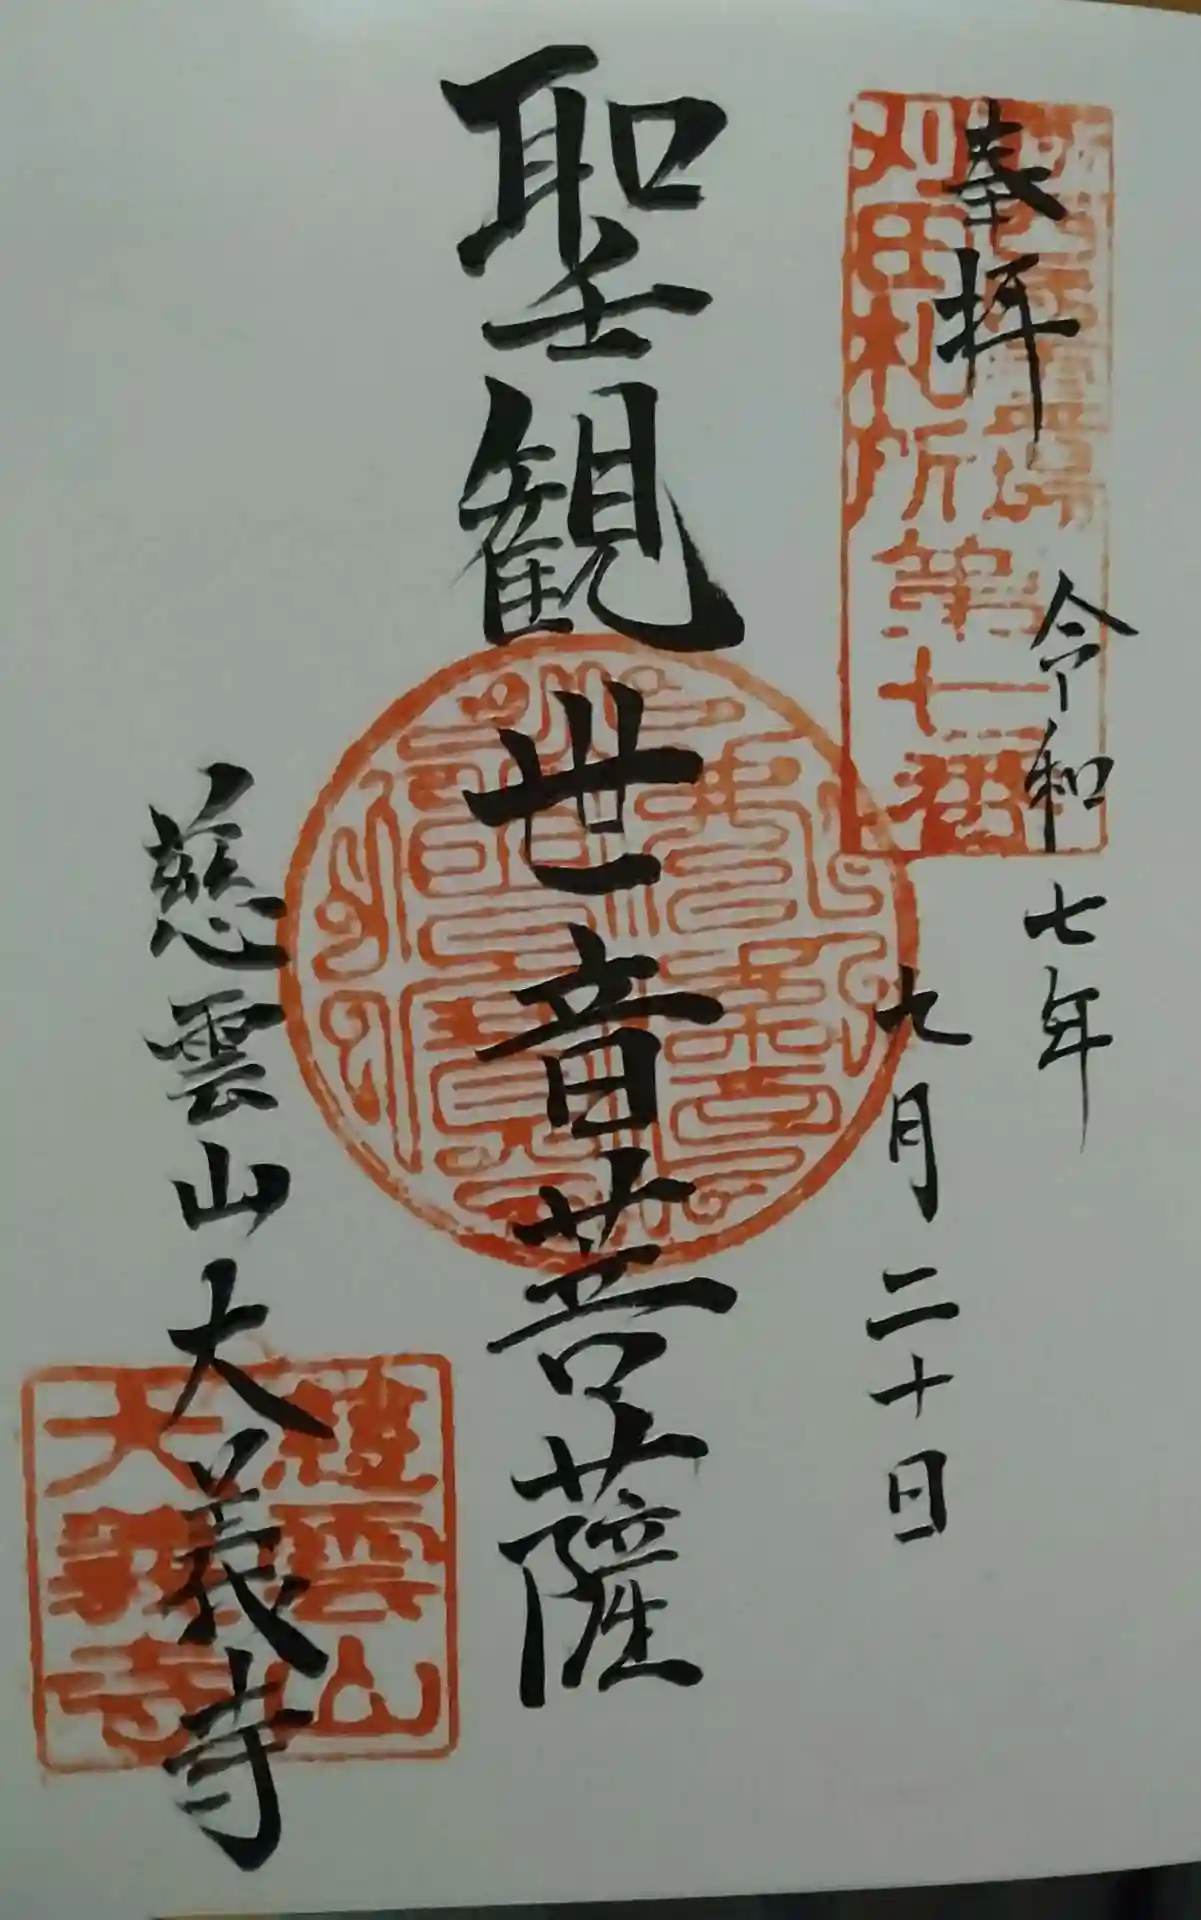 奉拝
令和七年
九月二十日
聖観世音菩薩
慈雲山大義寺
刈田札所第七番
慈雲山
大義寺